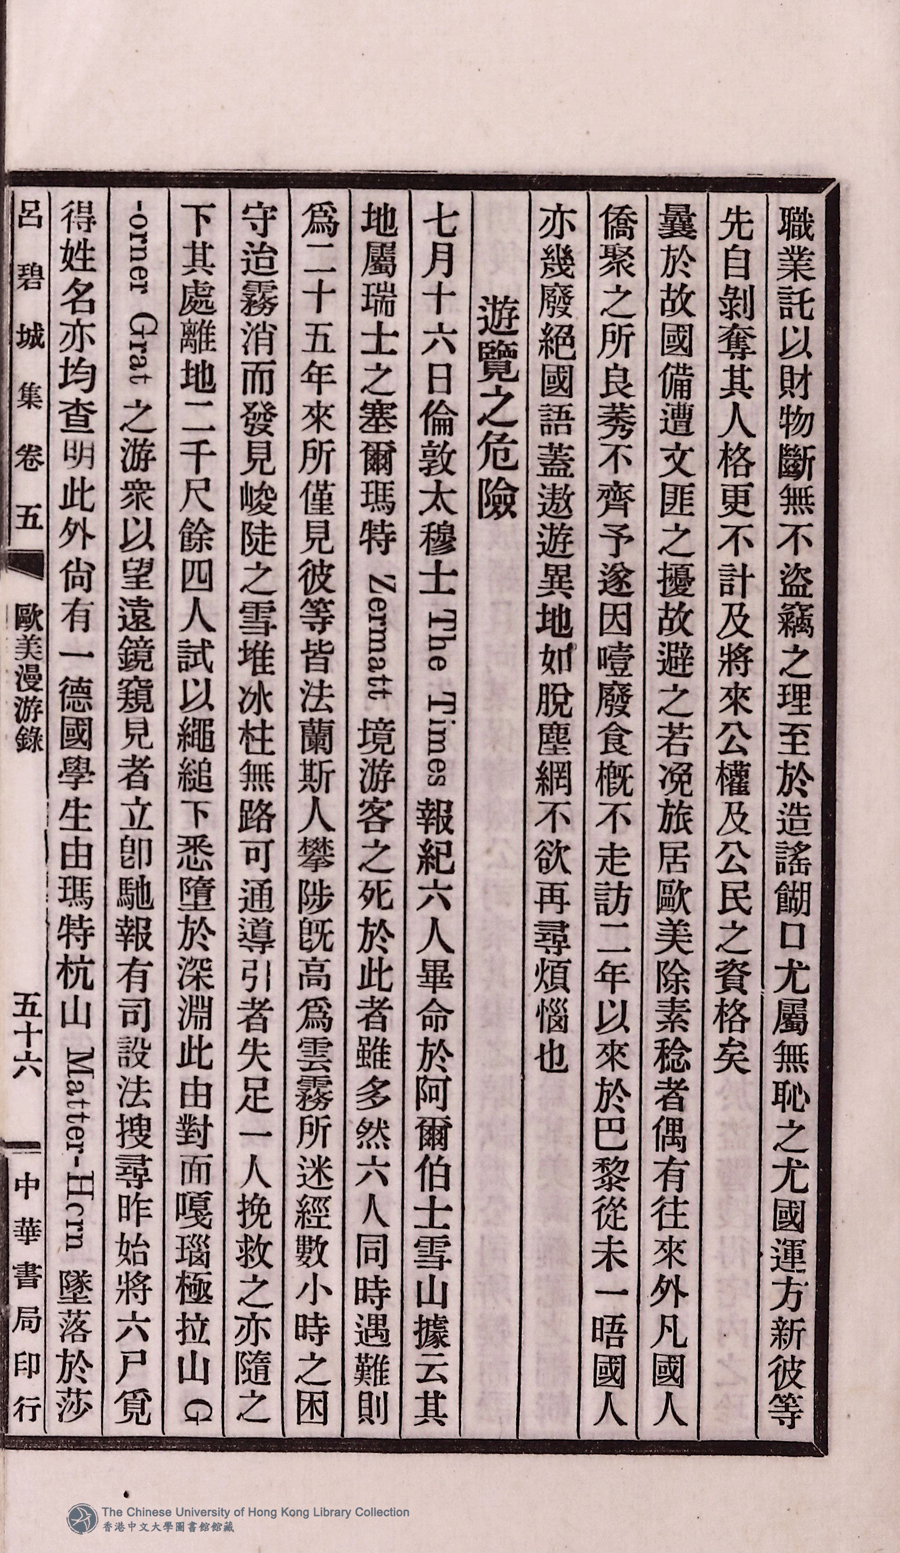 職業託以財物斷無不盜竊之理至於造謠餬口尤屬無恥之尤國運方新彼等
先自剝奪其人格更不計及將來公權及公民之資格矣
曩於故國備遭文匪之擾故避之若凂旅居歐美除素稔者偶有往來外凡國人
僑聚之所良莠不齊予遂因噎廢食槪不走訪二年以來於巴黎從未一晤國人
亦幾廢絕國語蓋遨遊異地如脫塵網不欲再尋煩惱也
遊覽之危險
七月十六日倫敦太穆士 The Times 報紀六人畢命於阿爾伯士雪山據云其
地屬瑞士之塞爾瑪特 Zermatt 境游客之死於此者雖多然六人同時遇難則
爲二十五年來所僅見彼等皆法蘭斯人攀陟旣高爲雲霧所迷經數小時之困
守迨霧消而發見峻陡之雪堆冰柱無路可通導引者失足一人挽救之亦隨之
下其處離地二千尺餘四人試以繩縋下悉墮於深淵此由對面嘎瑙極拉山 G
-orner Grat 之游衆以望遠鏡窺見者立卽馳報有司設法搜尋昨始將六尸覓
得姓名亦均查明此外尙有一德國學生由瑪特杭山 Matter-Horn 墜落於莎
呂碧城集卷五 歐美漫游錄 五十六 中華書局印行
The Chinese University of Hong Kong Library Collection
香港中文大學圖書館館藏